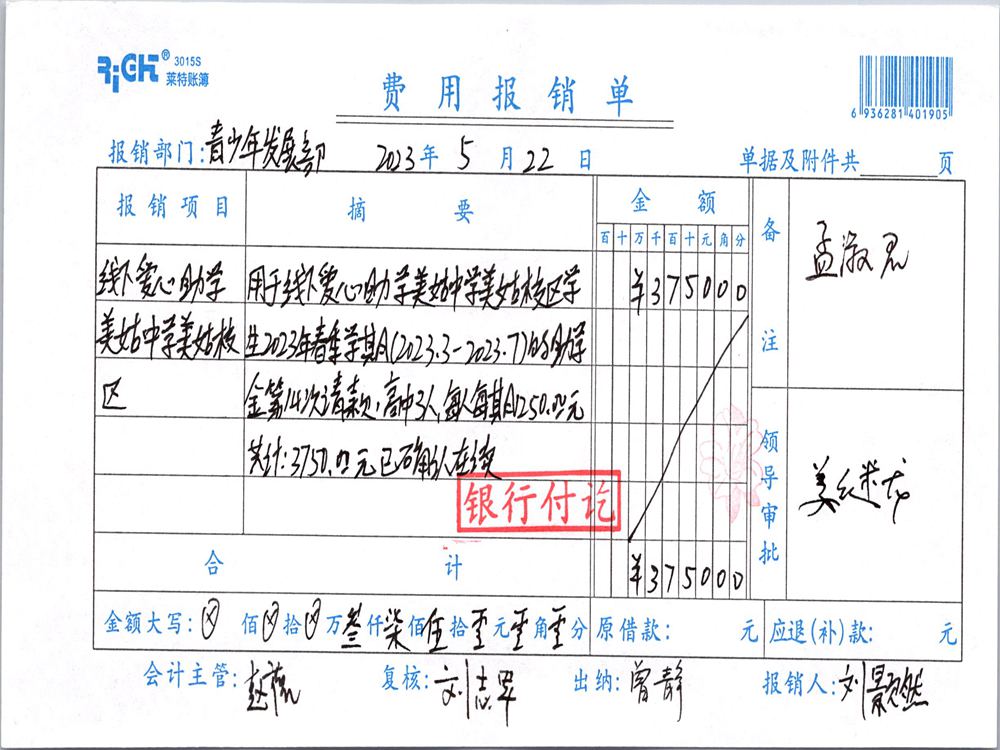 RiGHT® 3015S
莱特账簿
费用报销单
6 936281 401905
报销部门:青少年发展部 2023年5月22日 单据及附件共 页
报销项目 摘要 金额 备注
百十万千百十元角分
线下爱心助学 用于线下爱心助学美姑中学美姑校区学 ¥375000
美姑中学美姑校 生2023年春季学期(2023.3-2023.7)的助学
区 金第14次请款,高中3人,每人每期1250.00元
共计:3750.00元已确认在读
银行付讫
领导审批
合计 ¥375000
金额大写:⊗佰⊗拾⊗万叁仟柒佰伍拾零元零角零分 原借款: 元 应退(补)款: 元
会计主管: 复核:刘志 出纳:曾静 报销人:刘景然